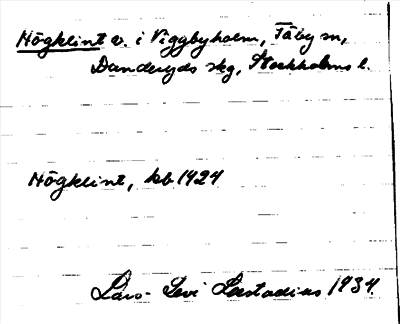 Högklint v. i Viggbyholm, Täby sn,
Danderyds skg, Stockholms l.
Högklint, kb 1424
Lars-Levi Læstadius 1934